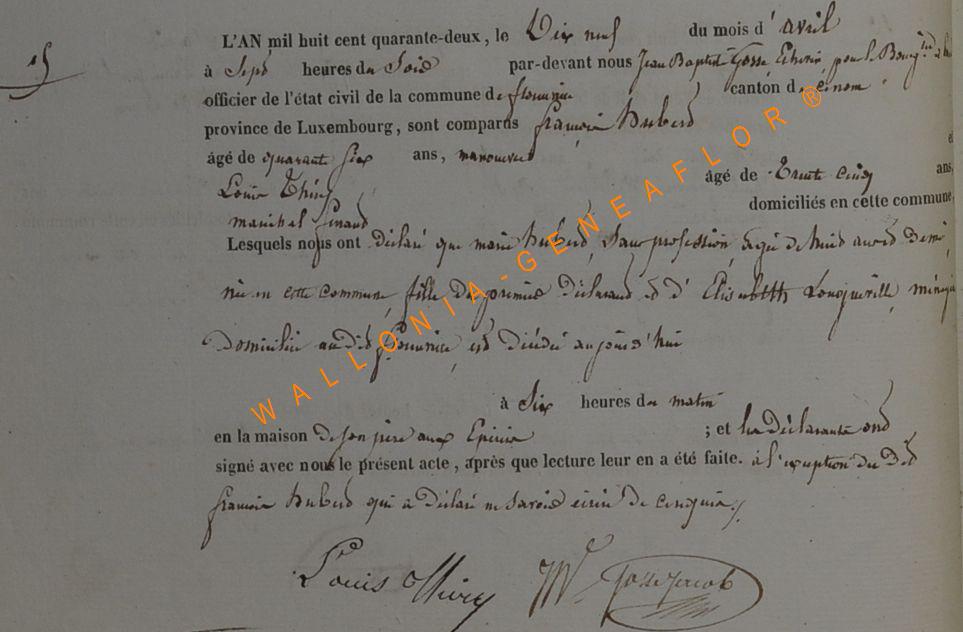 L'AN mil huit cent quarante-deux, le Dix neuf du mois d'avril
à Sept heures du Soir par-devant nous Jean Baptiste Gosse Echevin pour le Bourg
officier de l'état civil de la commune de canton de
province de Luxembourg, sont comparus françois Hubert
âgé de quarante six ans, manouvrier et
Louis Thiry âgé de Trente cinq ans,
marechal ferant domiciliés en cette commune
Lesquels nous ont déclaré que marie Hubert, Sans profession agée de huit ans et demi
née en cette commune, fille du premier déclarant et d'Elisabeth
Domicilié audit est décédée aujourd'hui
à Six heures du matin
en la maison de son père aux ; et les déclarants ont
signé avec nous le présent acte, après que lecture leur en a été faite. à l'exception du dit
françois Hubert qui a déclaré ne savoir écrire de ce requis
Louis thiry
WALLONIA-GENEAFLOR®